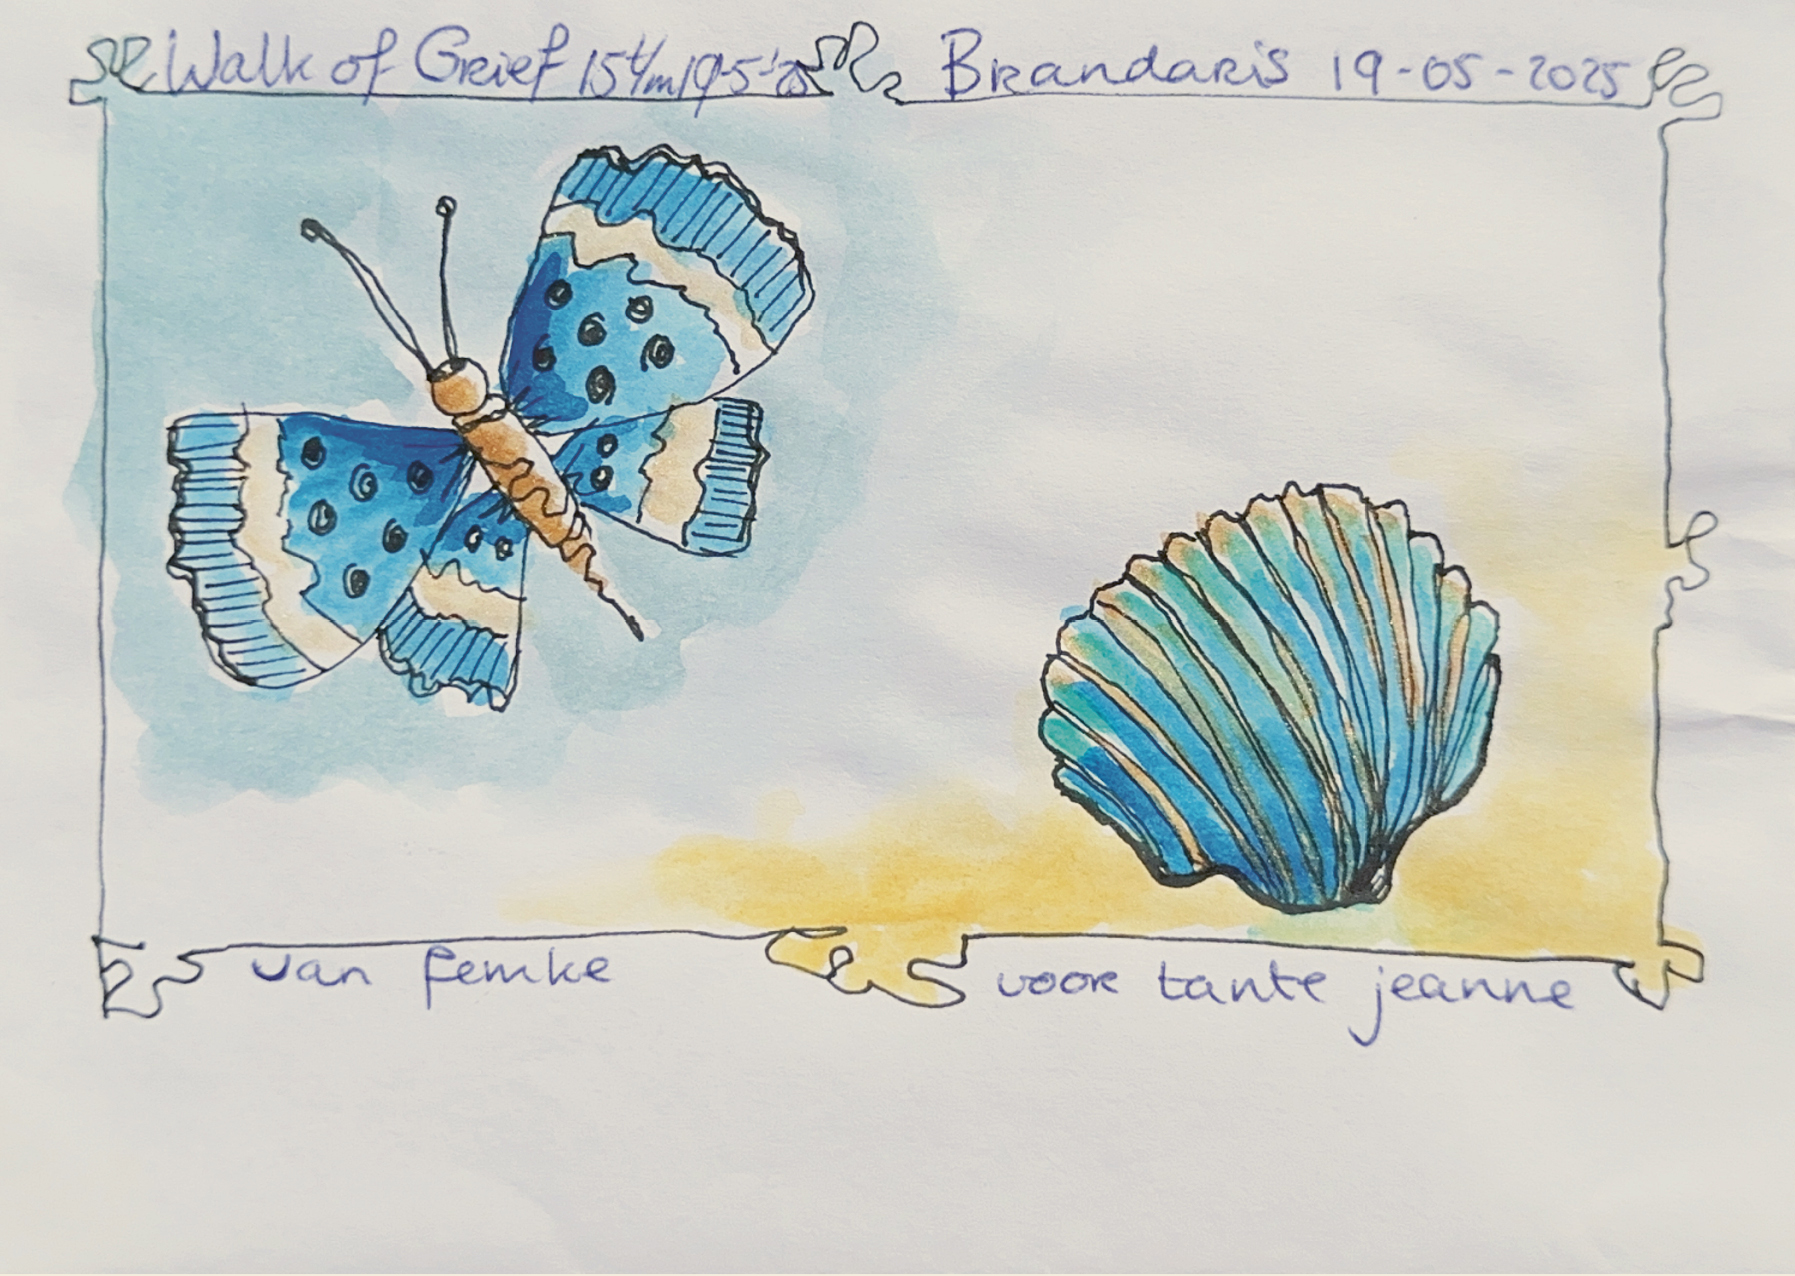 Walk of Grief 15 t/m 19-5-'25 Brandaris 19-05-2025
van femke voor tante jeanne